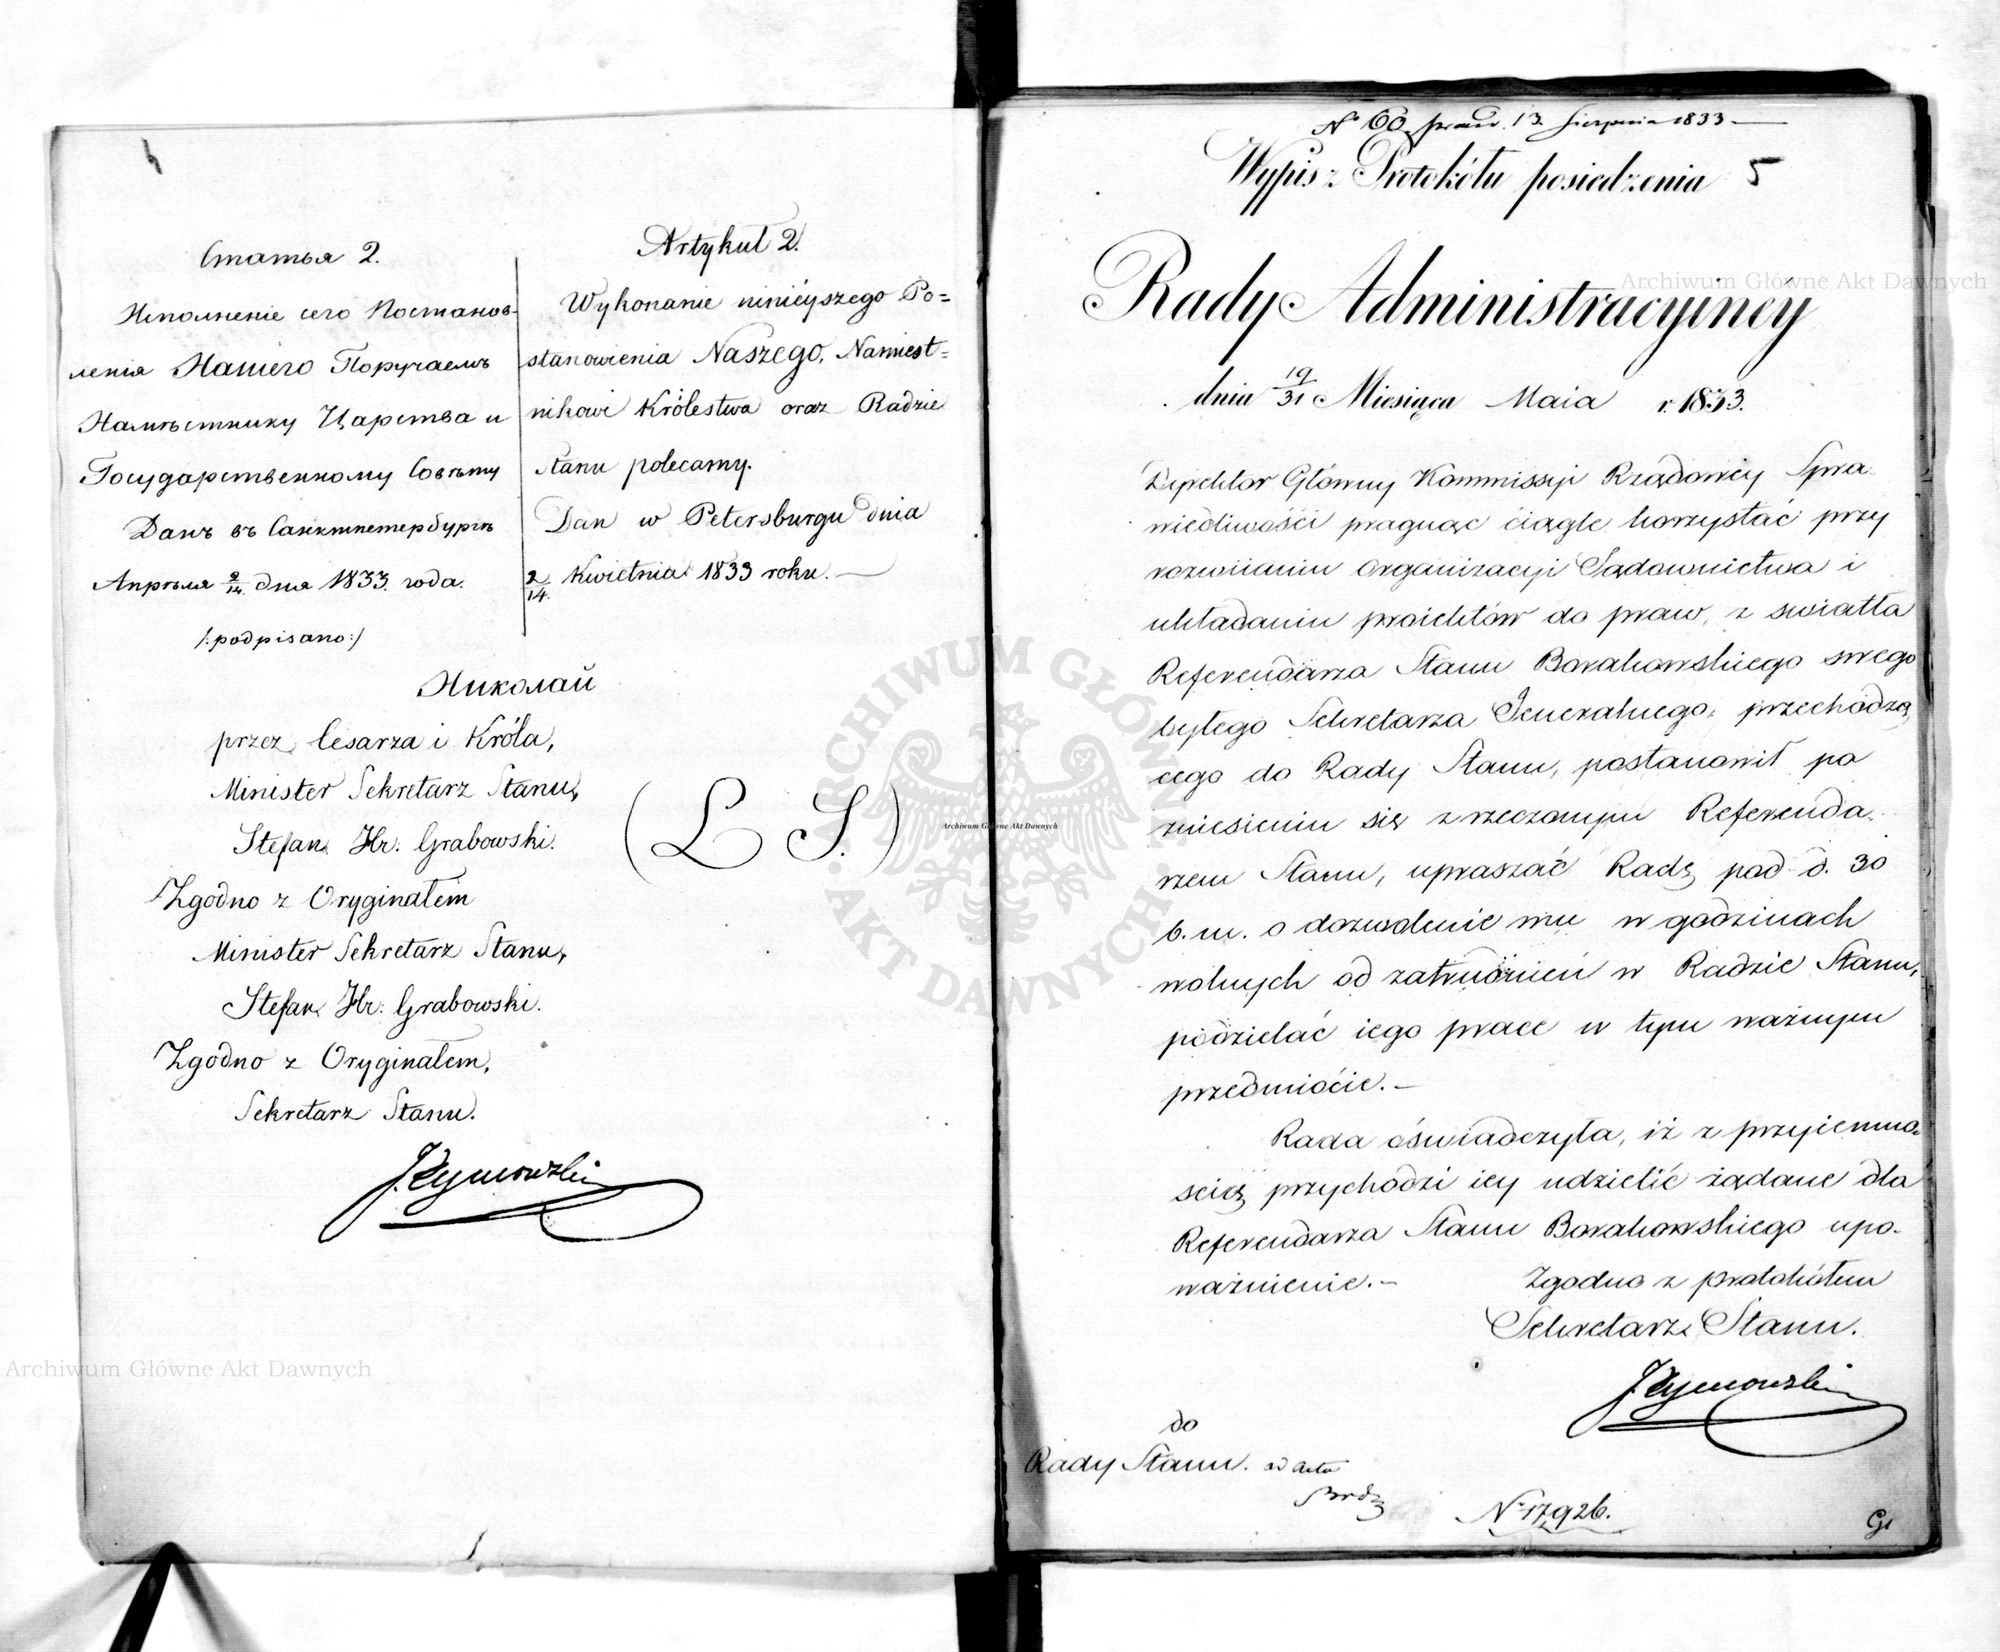 4
Статья 2.
Исполненіе сего Постанов-
ленія Нашего Поручаемъ
Намѣстнику Царства и
Государственному Совѣту
Данъ въ Санктпетербургѣ
Апрѣля 2/14. дня 1833. года.
/:podpisano:/
Artykuł 2.
Wykonanie ninieyszego Po=
stanowienia Naszego, Namiest=
nikowi Królestwa oraz Radzie
Stanu polecamy.
Dan w Petersburgu dnia
2/14. Kwietnia 1833 roku. —
Николай
przez Cesarza i Króla,
Minister Sekretarz Stanu,
Stefan Hr: Grabowski.
(L S.)
Zgodno z Oryginałem
Minister Sekretarz Stanu,
Stefan Hr: Grabowski.
Zgodno z Oryginałem,
Sekretarz Stanu.
J. Tymowski
Nº 60. 13. Sierpnia 1833 —
Wypis z Protokółu posiedzenia 5
Rady Administracyiney
dnia 19/31 Miesiąca Maia r. 1833.
Dyrektor Główny Kommissyi Rządowey Spra-
wiedliwości pragnąc ciągle korzystać przy
rozwiianiu organizacyi Sądownictwa i
układaniu proiektów do praw, z swiatła
Referendarza Stanu Borakowskiego swego
byłego Sekretarza Jeneralnego, przechodzą
cego do Rady Stanu, postanowił po
zniesieniu się z rzeczonym Referenda-
rzem Stanu, upraszać Radę pod d. 30
b. m. o dozwolenie mu w godzinach
wolnych od zatrudnień w Radzie Stanu,
podzielać iego prace w tym ważnym
przedmiocie. —
Rada oświadczyła, iż z przyiemno-
scią przychodzi iey udzielić żądane dla
Referendarza Stanu Borakowskiego upo-
ważnienie. —
Zgodno z protokółem
Sekretarz Stanu.
J. Tymowski
do
Rady Stanu. ad acta
Nº 17926.
Archiwum Główne Akt Dawnych
Archiwum Główne Akt Dawnych
Archiwum Główne Akt Dawnych
ARCHIWUM GŁÓWNE AKT DAWNYCH